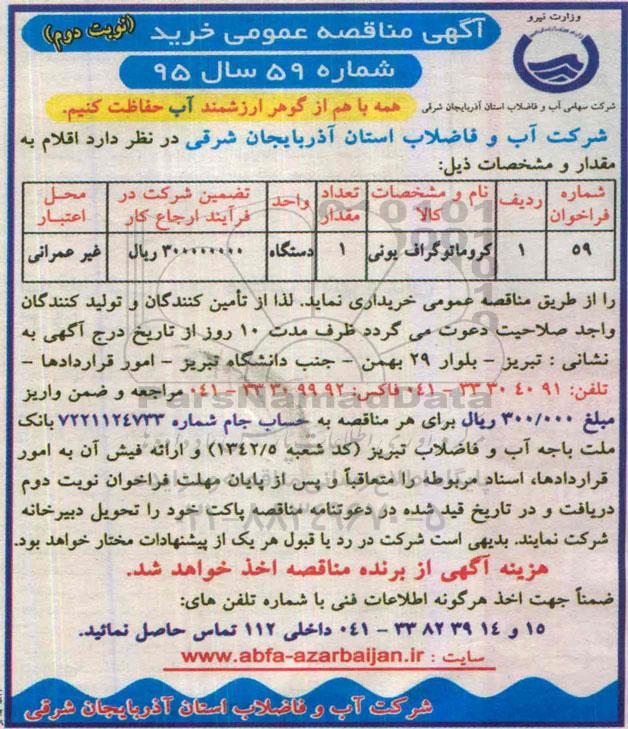 وزارت نیرو
شرکت سهامی آب و فاضلاب استان آذربایجان شرقی
آگهی مناقصه عمومی خرید (نوبت دوم)
شماره ۵۹ سال ۹۵
همه با هم از گوهر ارزشمند آب حفاظت کنیم.
شرکت آب و فاضلاب استان آذربایجان شرقی در نظر دارد اقلام به
مقدار و مشخصات ذیل:
شماره فراخوان | ردیف | نام و مشخصات کالا | تعداد مقدار | واحد | تضمین شرکت در فرآیند ارجاع کار | محل اعتبار
۵۹ | ۱ | کروماتوگراف یونی | ۱ | دستگاه | ۳۰۰۰۰۰۰۰۰ ریال | غیر عمرانی
را از طریق مناقصه عمومی خریداری نماید. لذا از تأمین کنندگان و تولید کنندگان
واجد صلاحیت دعوت می گردد ظرف مدت ۱۰ روز از تاریخ درج آگهی به
نشانی : تبریز - بلوار ۲۹ بهمن - جنب دانشگاه تبریز - امور قراردادها -
تلفن: ۹۱ ۴۰ ۳۰ ۳۳ - ۰۴۱ فاکس: ۹۲ ۹۹ ۳۰ ۳۳ - ۰۴۱ مراجعه و ضمن واریز
مبلغ ۳۰۰/۰۰۰ ریال برای هر مناقصه به حساب جام شماره ۷۲۲۱۱۲۴۷۳۳ بانک
ملت باجه آب و فاضلاب تبریز (کد شعبه ۱۳۴۲/۵) و ارائه فیش آن به امور
قراردادها، اسناد مربوطه را متعاقباً و پس از پایان مهلت فراخوان نوبت دوم
دریافت و در تاریخ قید شده در دعوتنامه مناقصه پاکت خود را تحویل دبیرخانه
شرکت نمایند. بدیهی است شرکت در رد یا قبول هر یک از پیشنهادات مختار خواهد بود.
هزینه آگهی از برنده مناقصه اخذ خواهد شد.
ضمناً جهت اخذ هرگونه اطلاعات فنی با شماره تلفن های:
۱۵ و ۱۴ ۳۹ ۸۲ ۳۳ - ۰۴۱ داخلی ۱۱۲ تماس حاصل نمائید.
سایت : www.abfa-azarbaijan.ir
شرکت آب و فاضلاب استان آذربایجان شرقی
ParsNamadData
۰۲۱-۸۸۳۴۹۶۷۰-۵